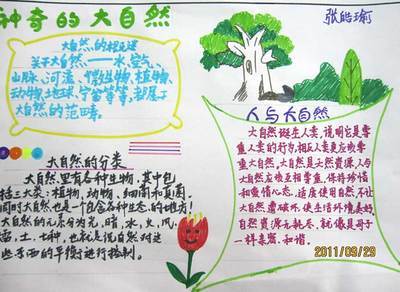 神奇的大自然
张皓瑜
大自然的相关述
关于大自然——水、空气、
山脉、河流、微生物、植物、
动物、地球、宇宙等等，都属于
大自然的范畴。
大自然的分类
大自然里有各种生物，其中包
括三大类：植物，动物，细菌和真菌。
同时大自然也是一个包含各种生态的地方！
大自然的元素为光，暗，水，火，风，
雷，土，七种，也就是说自然对这
些东西的平衡进行控制。
人与大自然
大自然诞生人类，说明它是尊
重人类的行为，相反人类更应敬尊
重大自然，大自然是天然资源，人与
大自然应敬互相尊重，保持珍惜
和爱惜心态。适度使用自然，不让
大自然遭破坏，使生活环境美好，
自然资源无耗尽，就像是母子
一样亲密，和谐。
2011/09/29